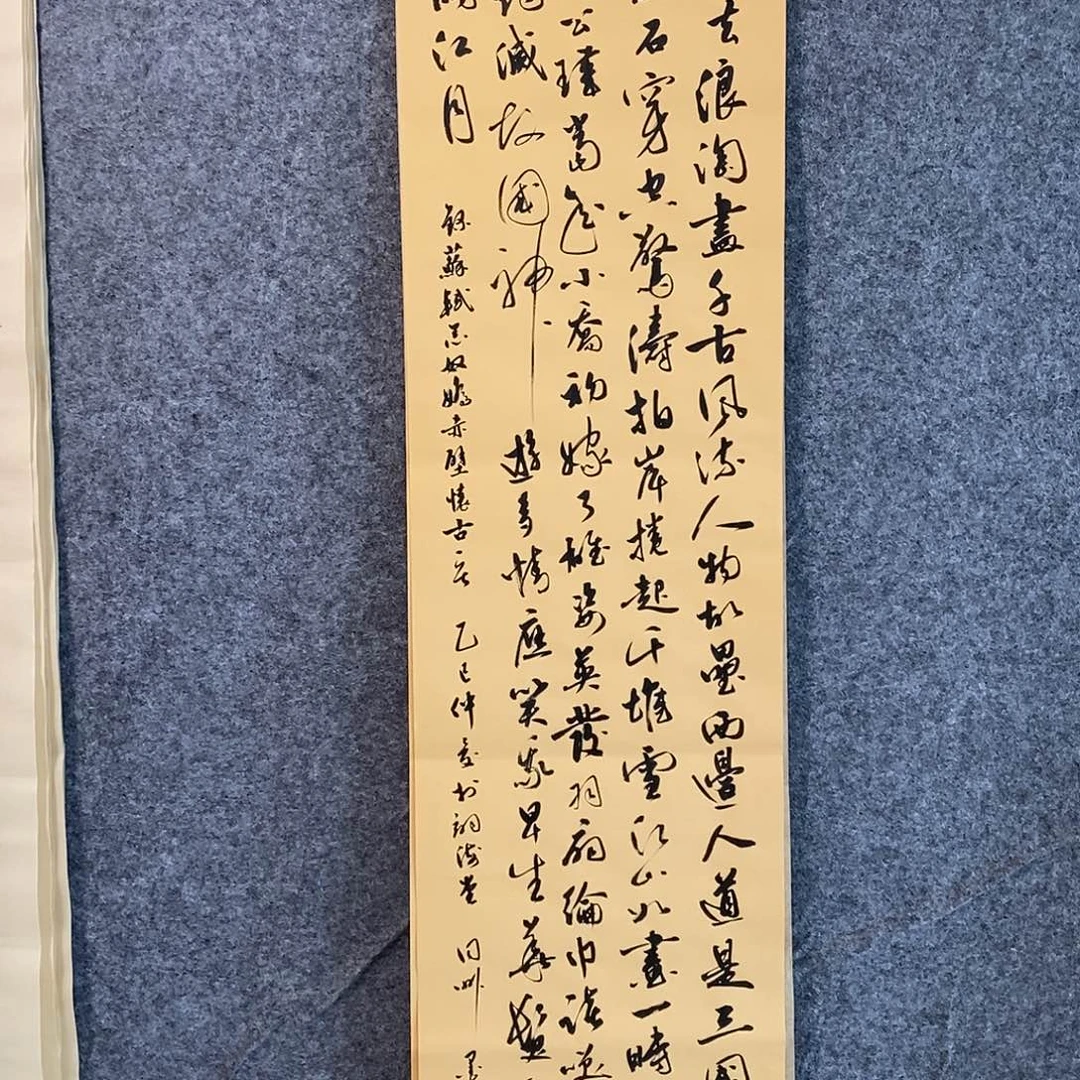 去浪淘盡千古風流人物故壘西邊人道是三國
石穿空驚濤拍岸捲起千堆雪江山如畫一時
公瑾當年小喬初嫁了雄姿英發羽扇綸巾談笑
滅故國神遊多情應笑我早生華髮
江月
錄蘇軾念奴嬌赤壁懷古 乙巳仲夏於海堂 同州